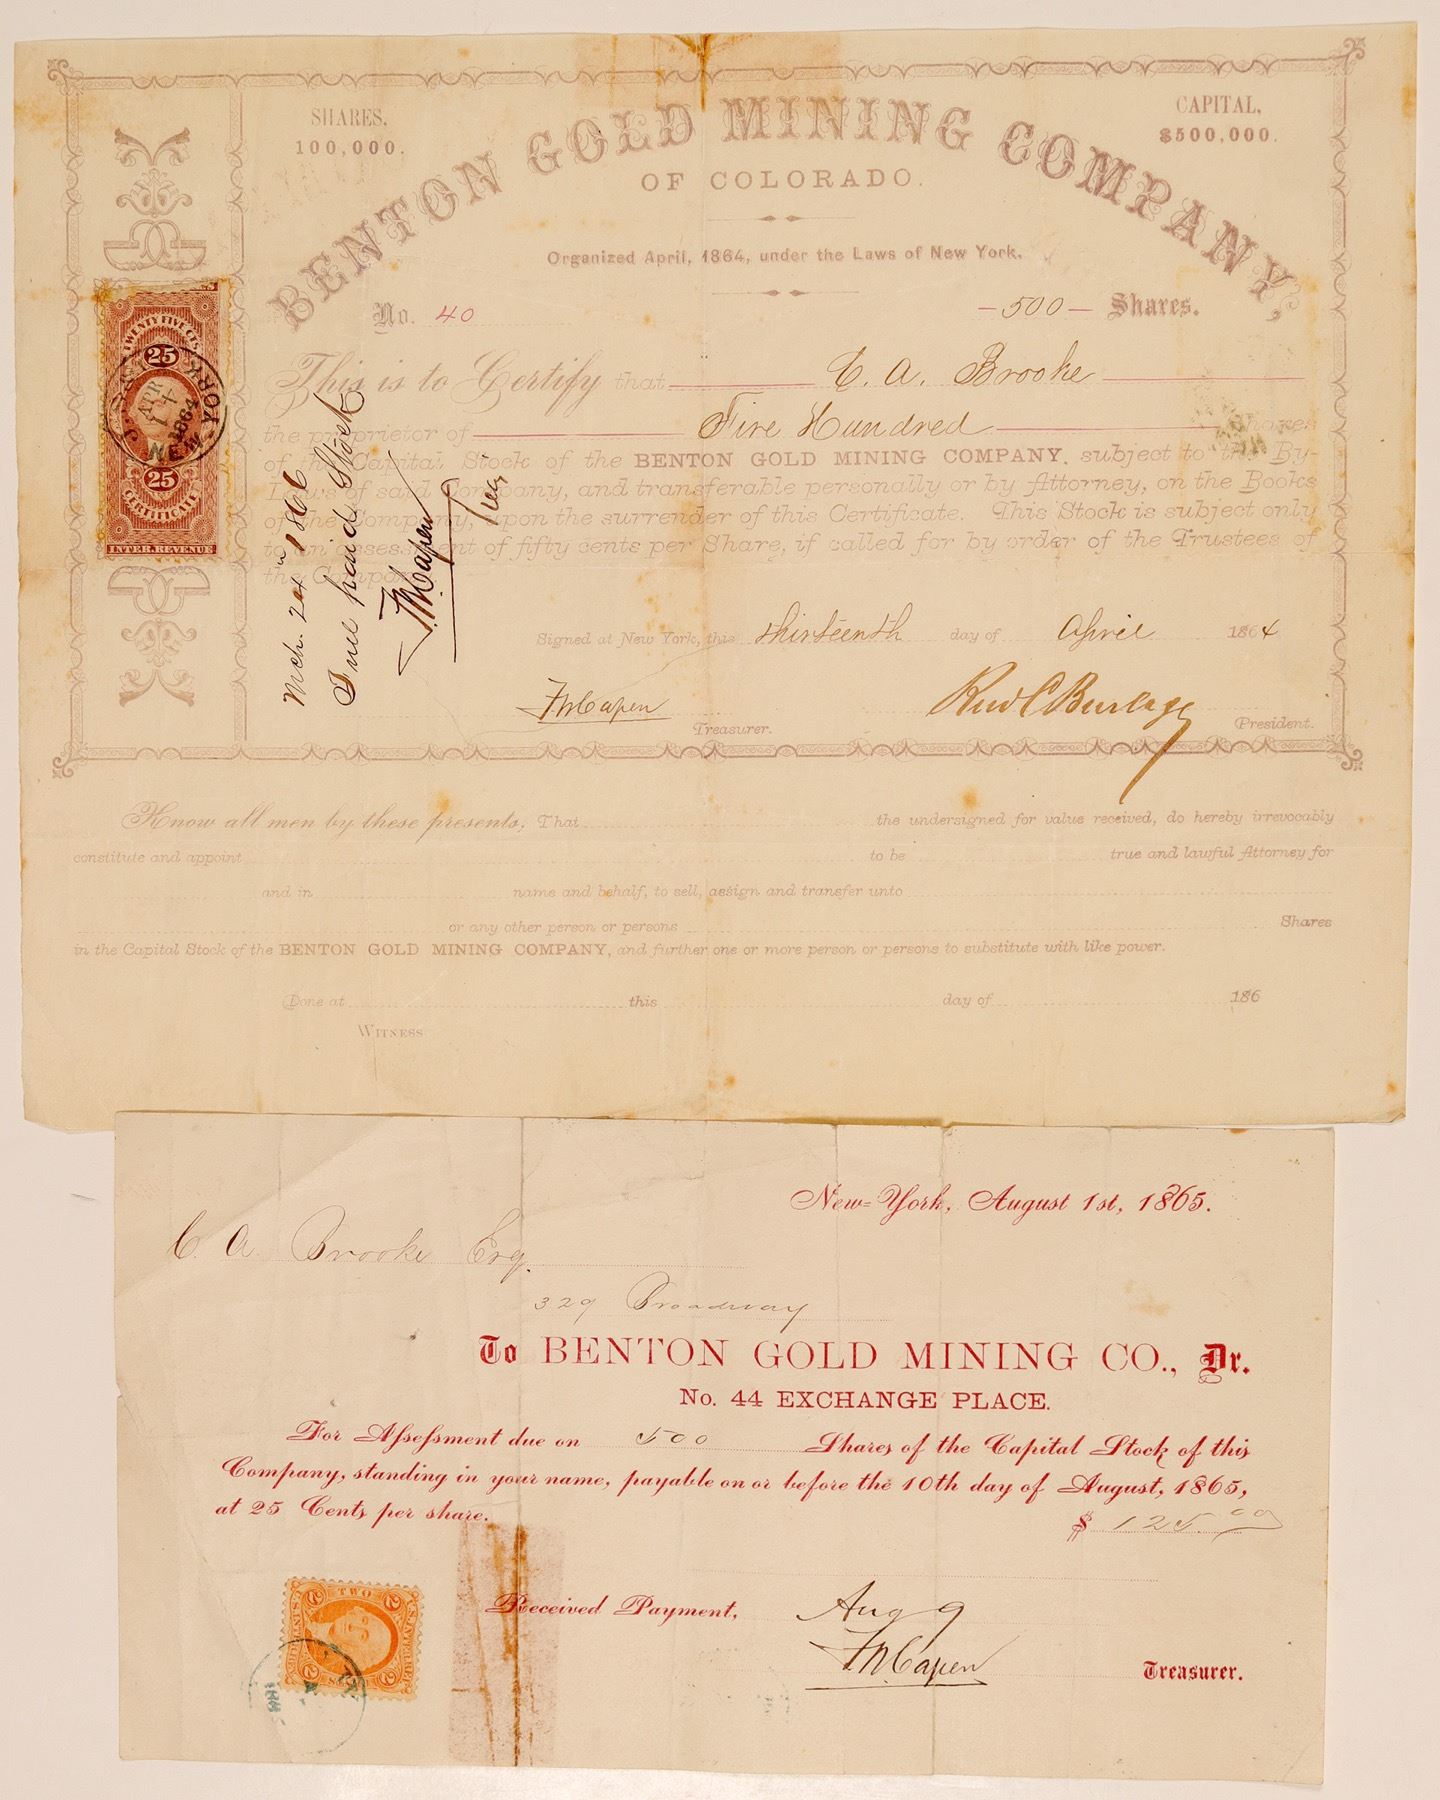 SHARES,
100,000.
CAPITAL,
$500,000.
BENTON GOLD MINING COMPANY,
OF COLORADO.
Organized April, 1864, under the Laws of New York.
No. 40
— 500 — Shares.
This is to Certify that C. A. Brooke
the proprietor of Five Hundred Shares
of the Capital Stock of the BENTON GOLD MINING COMPANY, subject to the By-
Laws of said Company, and transferable personally or by Attorney, on the Books
of the Company, upon the surrender of this Certificate. This Stock is subject only
to an assessment of fifty cents per Share, if called for by order of the Trustees of
the Company.
Signed at New York, this thirteenth day of April 1864
Treasurer.
President.
Mch. 24th 186
Full paid Stock
F. M. Capen
Treas
TWENTY FIVE CTS
25
APR
1864
NEW YORK
25
CERTIFICATE
INTER. REVENUE
Know all men by these presents, That the undersigned for value received, do hereby irrevocably
constitute and appoint to be true and lawful Attorney for
and in name and behalf, to sell, assign and transfer unto
or any other person or persons Shares
in the Capital Stock of the BENTON GOLD MINING COMPANY, and further one or more person or persons to substitute with like power.
Done at this day of 186
WITNESS
New-York, August 1st, 1865.
C. A. Brooke Esq.
329 Broadway
To BENTON GOLD MINING CO., Dr.
No. 44 EXCHANGE PLACE.
For Assessment due on 500 Shares of the Capital Stock of this
Company, standing in your name, payable on or before the 10th day of August, 1865,
at 25 Cents per share.
$ 125.00
Received Payment, Aug 9
F M Capen
Treasurer.
TWO
2 2
U.S. INTER. REV.
2 CTS 2